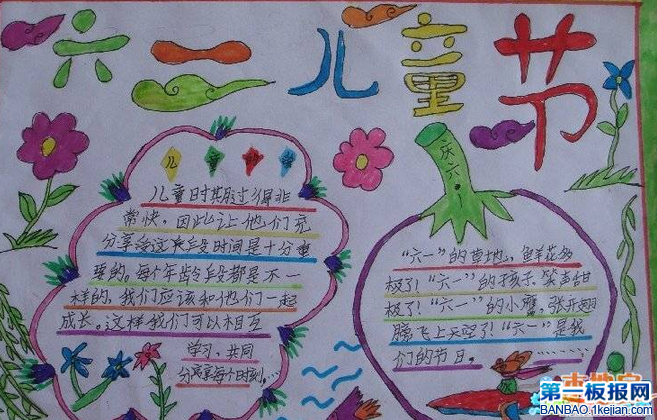 六一儿童节
儿童时期过得非
常快，因此让他们充
分享受这声段时间是十分重
要的。每个年龄段都是不一
样的，我们应该和他们一起
成长。这样我们可以相互
学习，共同
分享每个时刻，…
庆六一
“六一”的草地，鲜花多
极了！“六一”的孩子，笑声甜
极了！“六一”的小鹰，张开翅
膀飞上天空了！“六一”是我
们的节日。…………
第一板报网
BANBAO.1kejian.com